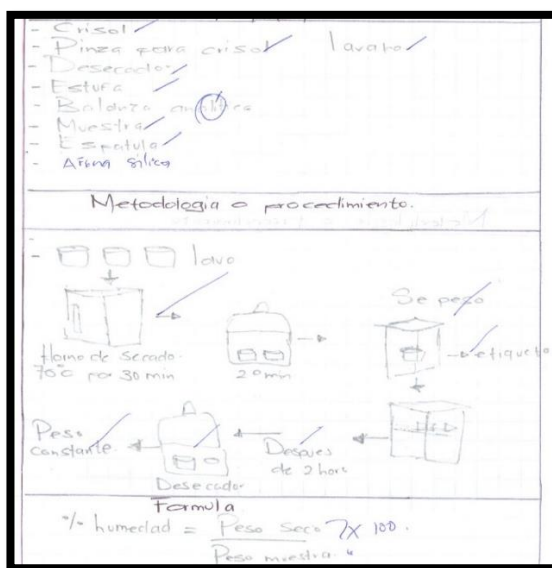 - Crisol
- Pinza para crisol lavabo
- Desecador
- Estufa
- Balanza analítica
- Muestra
- Espatula
- Arena silica
Metodologia o procedimiento.
- lavo
Se peso
Horno de secado
70°C por 30 min
20 min
etiqueto
Peso constante
Despues de 2 hors
Desecador
Formula
% humedad = Peso Seco X 100.
Peso muestra